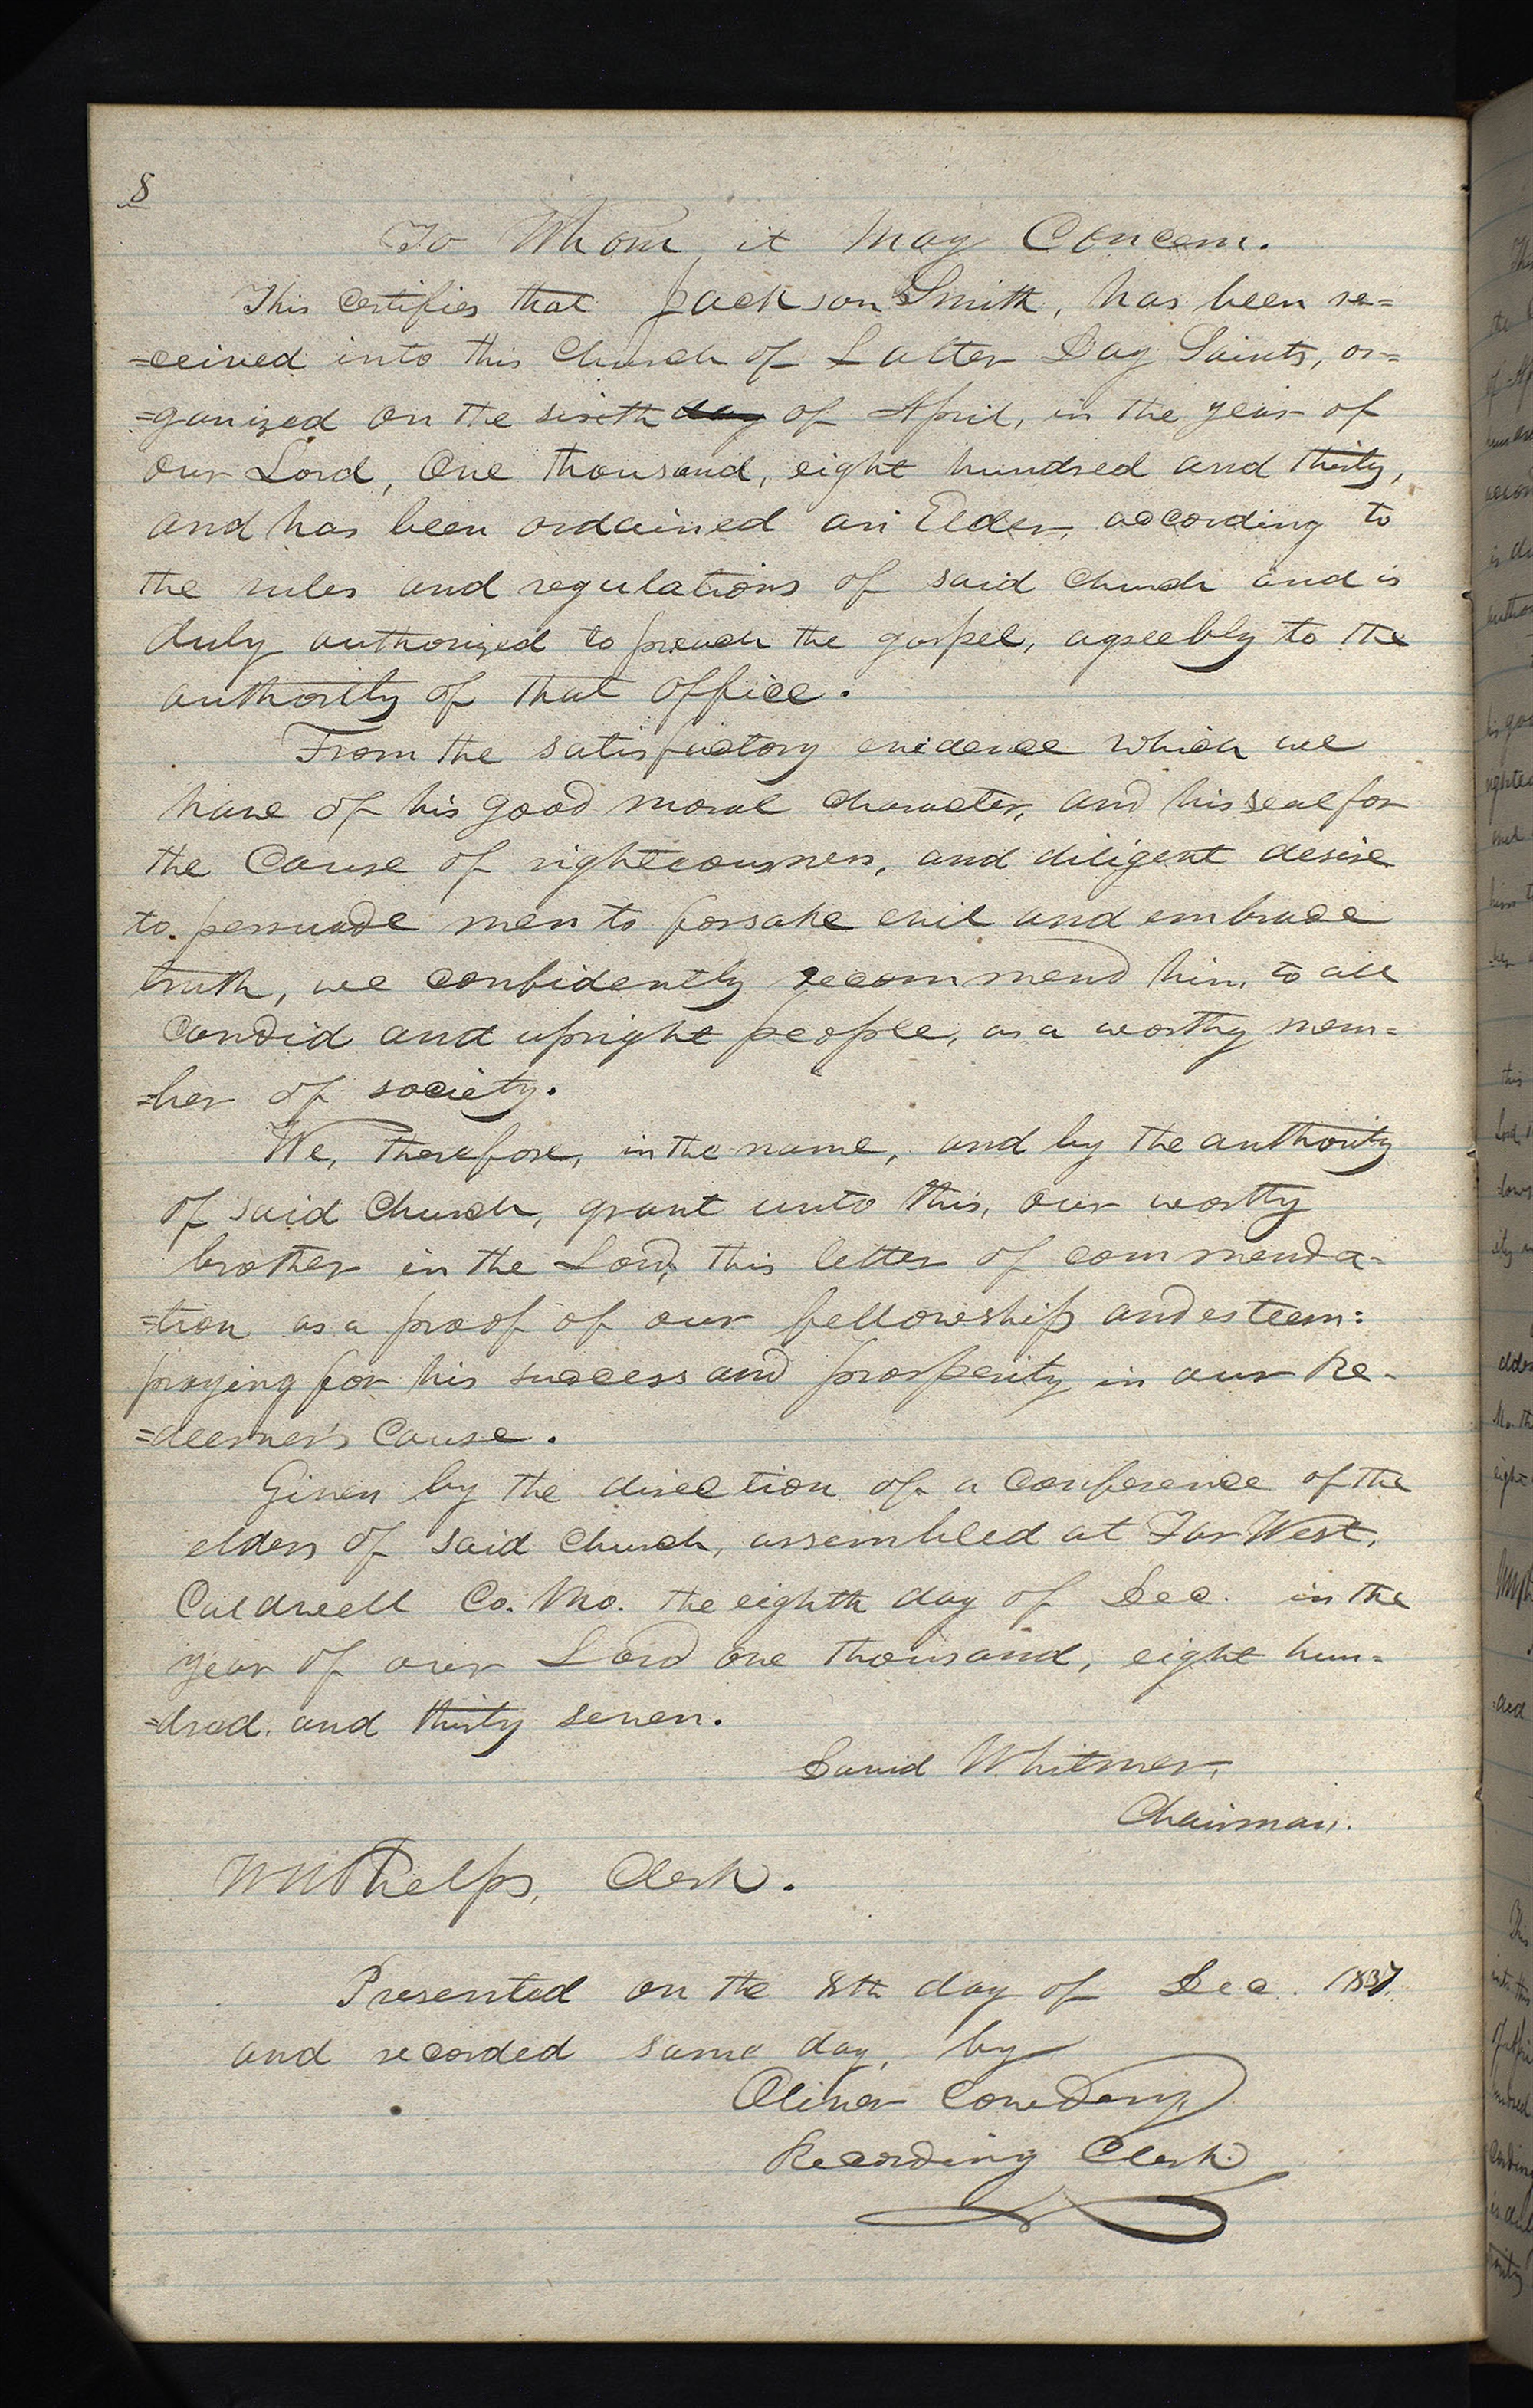 8
To Whom it May Concern.
This certifies that Jackson Smith, has been re=
=ceived into this Church of Latter Day Saints, or=
=ganized on the sixth day of April, in the year of
our Lord, One thousand, eight hundred and thirty,
and has been ordained an Elder, according to
the rules and regulations of said church and is
duly authorized to preach the gospel, agreebly to the
authority of that office.
From the satisfactory evidence which we
have of his good moral character, and his zeal for
the Cause of righteousness, and diligent desire
to persuade men to forsake evil and embrace
truth, we confidently recommend him, to all
Candid and upright people, as a worthy mem=
=ber of society.
We, therefore, in the name, and by the authority
of said Church, grant unto this, our worthy
brother in the Lord, this letter of commenda-
=tion as a proof of our fellowship and esteem:
praying for his success and prosperity in our Re-
=deemer's Cause.
Given by the direction of a conference of the
elders of said church, assembled at Far West,
Caldwell Co. Mo. the eighth day of Dec. in the
year of our Lord one thousand, eight hun=
=dred. and thirty seven.
David Whitmer,
Chairman.
WWPhelps, Clerk.
Presented on the 8th day of Dec. 1837.
and recorded same day, by
Oliver Cowdery,
Recording Clerk